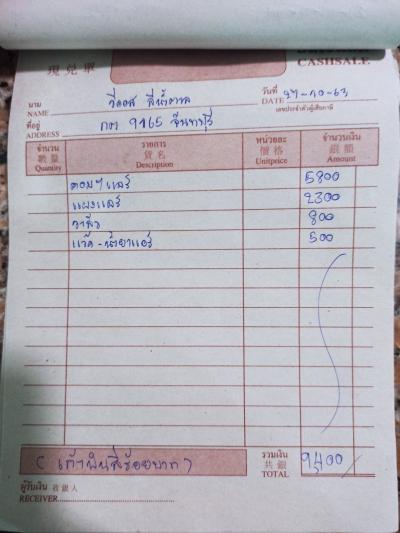 現兌單
CASHSALE
นาม NAME วีออส สีน้ำตาล วันที่ DATE 27-10-63
เลขประจำตัวผู้เสียภาษี
ที่อยู่ ADDRESS กต 9165 จันทบุรี
จำนวน 數量 Quantity รายการ 貨名 Description หน่วยละ 價格 Unitprice จำนวนเงิน 銀額 Amount
คอมฯแอร์ 5800
แผงแอร์ 2300
วาล์ว 800
แว๊ค-น้ำยาแอร์ 500
(เก้าพันสี่ร้อยบาท) รวมเงิน 共銀 TOTAL 9,400
ผู้รับเงิน 收銀人
RECEIVER